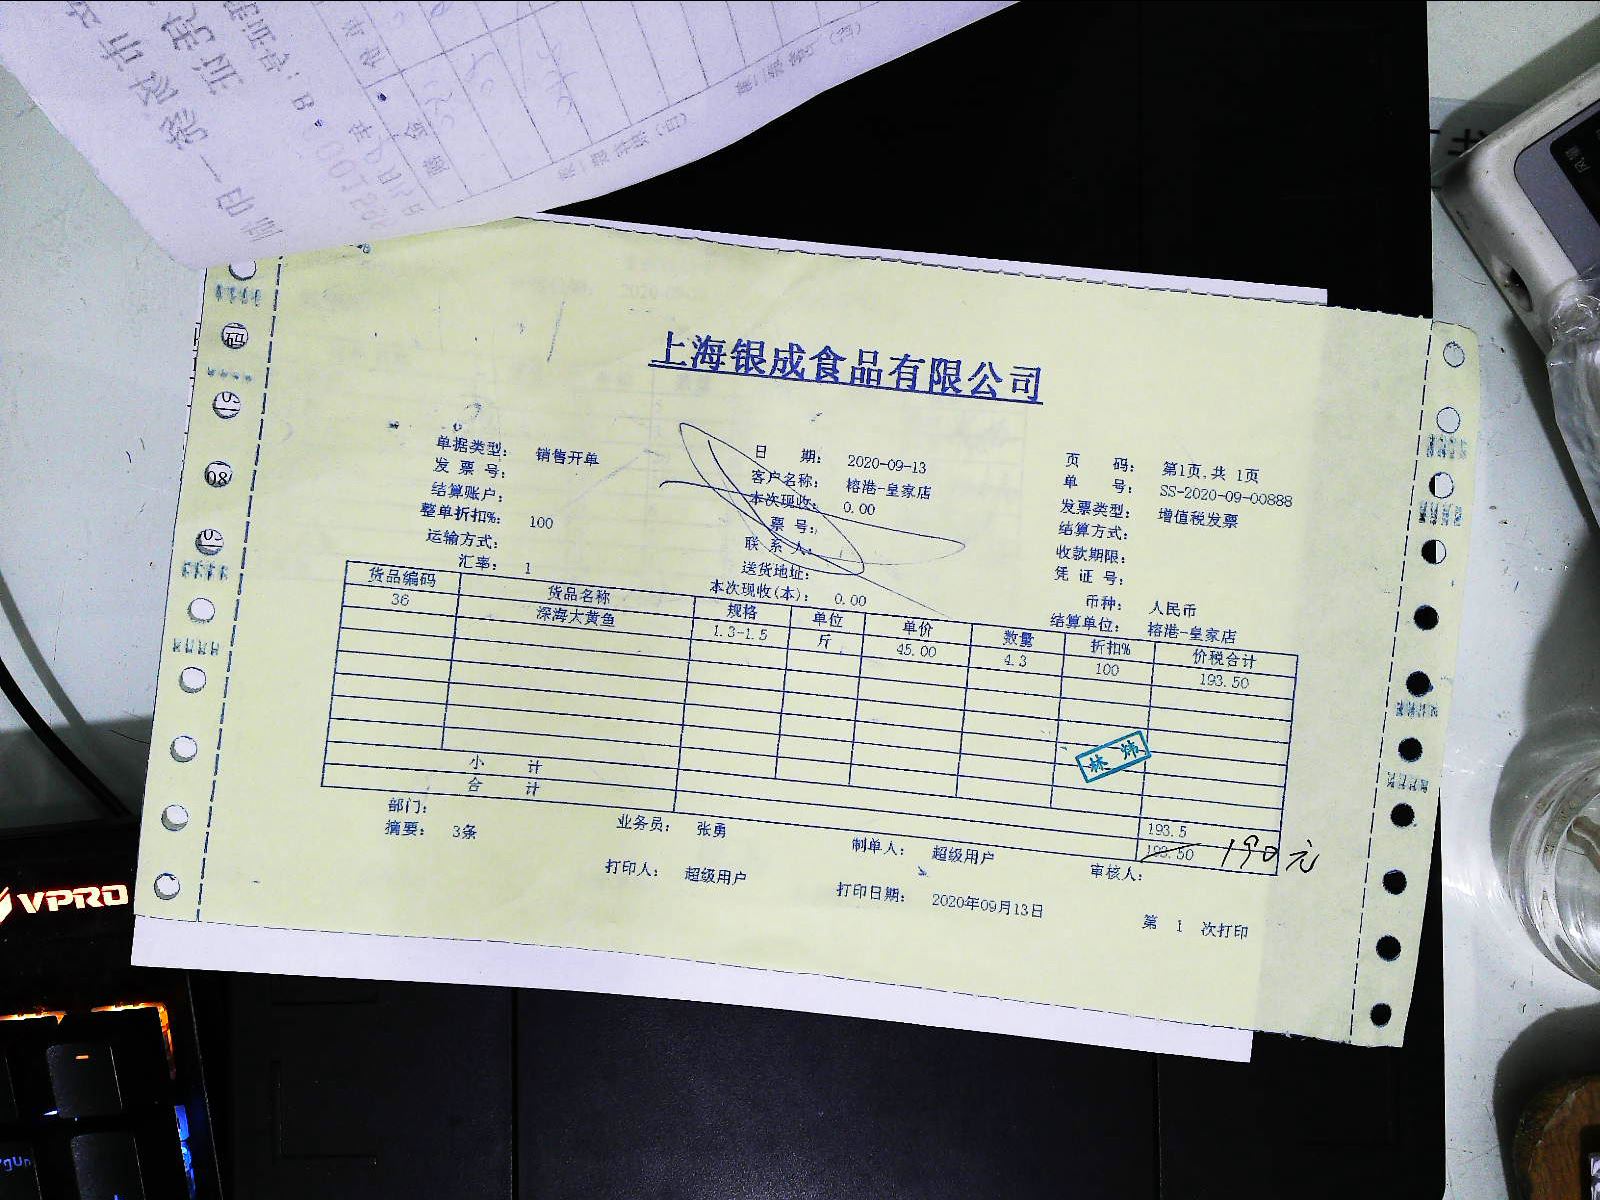 上海银成食品有限公司
单据类型: 销售开单 日 期: 2020-09-13 页 码: 第1页,共 1页
发 票 号: 客户名称: 榕港-皇家店 单 号: SS-2020-09-00888
结算账户: 本次现收: 0.00 发票类型: 增值税发票
整单折扣%: 100 票 号: 结算方式:
运输方式: 联 系 人: 收款期限:
汇率: 1 送货地址: 凭 证 号:
本次现收(本): 0.00 币种: 人民币
结算单位: 榕港-皇家店
货品编码 货品名称 规格 单位 单价 数量 折扣% 价税合计
36 深海大黄鱼 1.3-1.5 斤 45.00 4.3 100 193.50
林炜
小 计 193.5
合 计 193.50 190元
部门: 业务员: 张勇 制单人: 超级用户 审核人:
摘要: 3条 打印人: 超级用户 打印日期: 2020年09月13日 第 1 次打印
码
08
VPRO
PgUp
风量